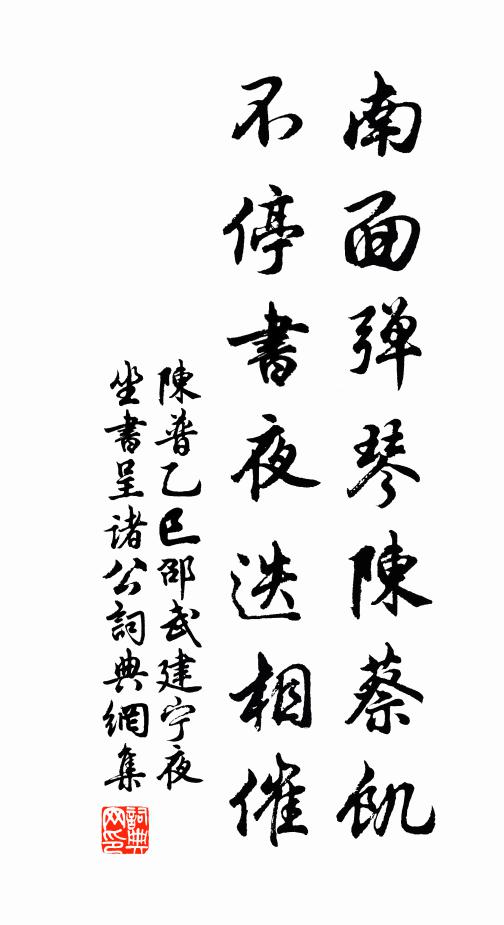 南面弹琴陳蔡飢
不停書夜迭相催
陳普乙巳邵武建宁夜
坐書呈诸公詞典網集
詞典
网印